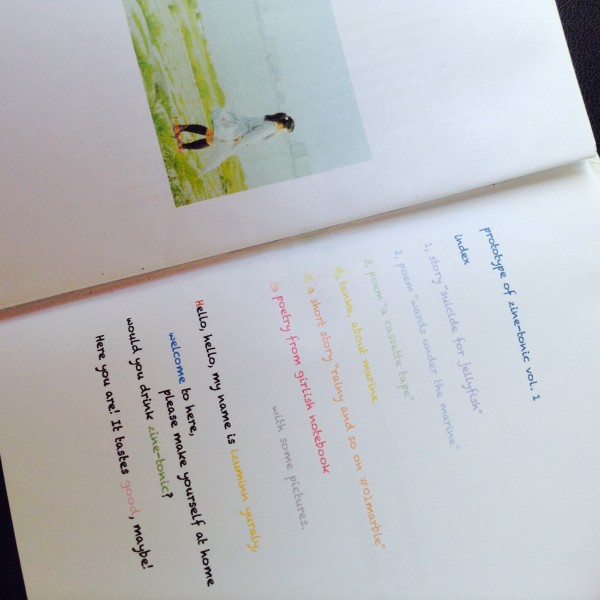 prototype of zine-tonic vol.1
index
1, story "suicide for jellyfish"
2, poem "words under the marine"
3, poem "a cassette tape"
4, tanka, about marine
5, a short story "rainy and so on #02marble"
6, poetry from girlish notebook
with some pictures.
Hello, hello, my name is Izuminn yuraly,
welcome to here,
please make yourself at home
would you drink zine-tonic?
Here you are! It tastes good, maybe!